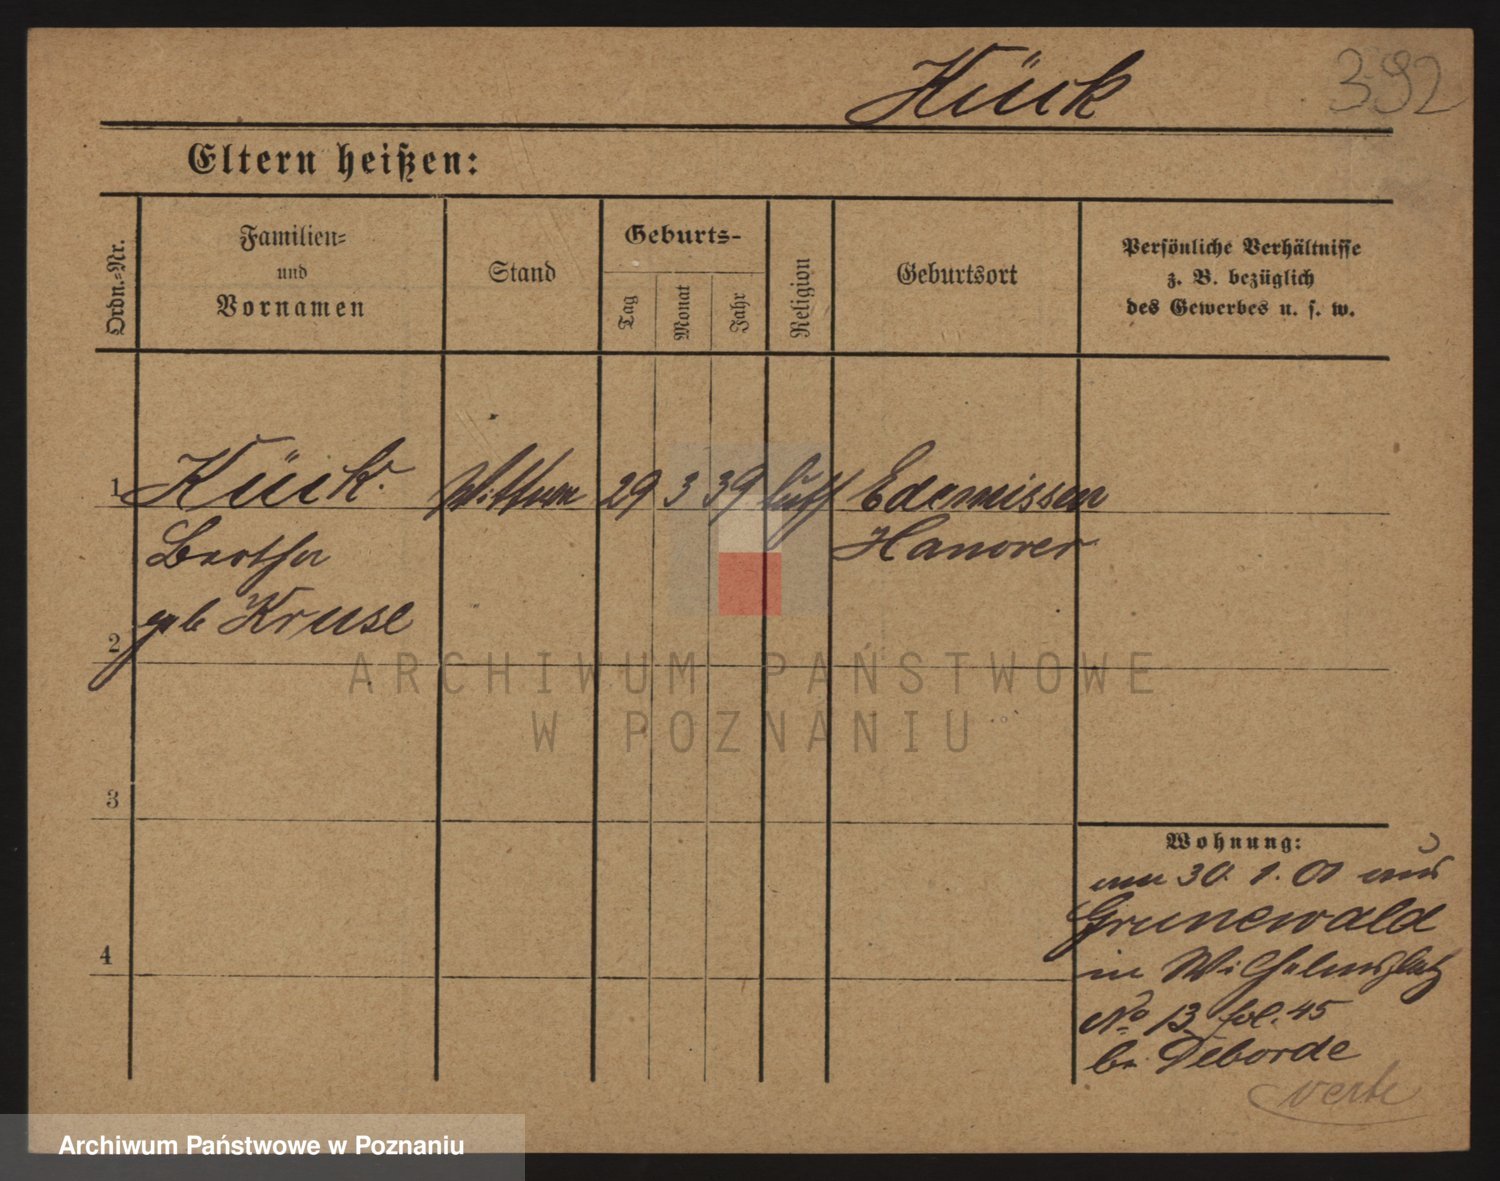 Kück
392
Eltern heißen:
Ordn.-Nr.
Familien-
und
Vornamen
Stand
Geburts-
Tag
Monat
Jahr
Religion
Geburtsort
Persönliche Verhältnisse
z. B. bezüglich
des Gewerbes u. s. w.
1 Kück Wittwe 29 3 39 luth Edemissen
Bertha Hanover
geb Kruse
2
ARCHIWUM PAŃSTWOWE
W POZNANIU
3
Wohnung:
am 30. 1. 01 aus
Grunewald
4
in Wilhelmsplatz
No 13 fol. 45
bei Deborde
verte
Archiwum Państwowe w Poznaniu